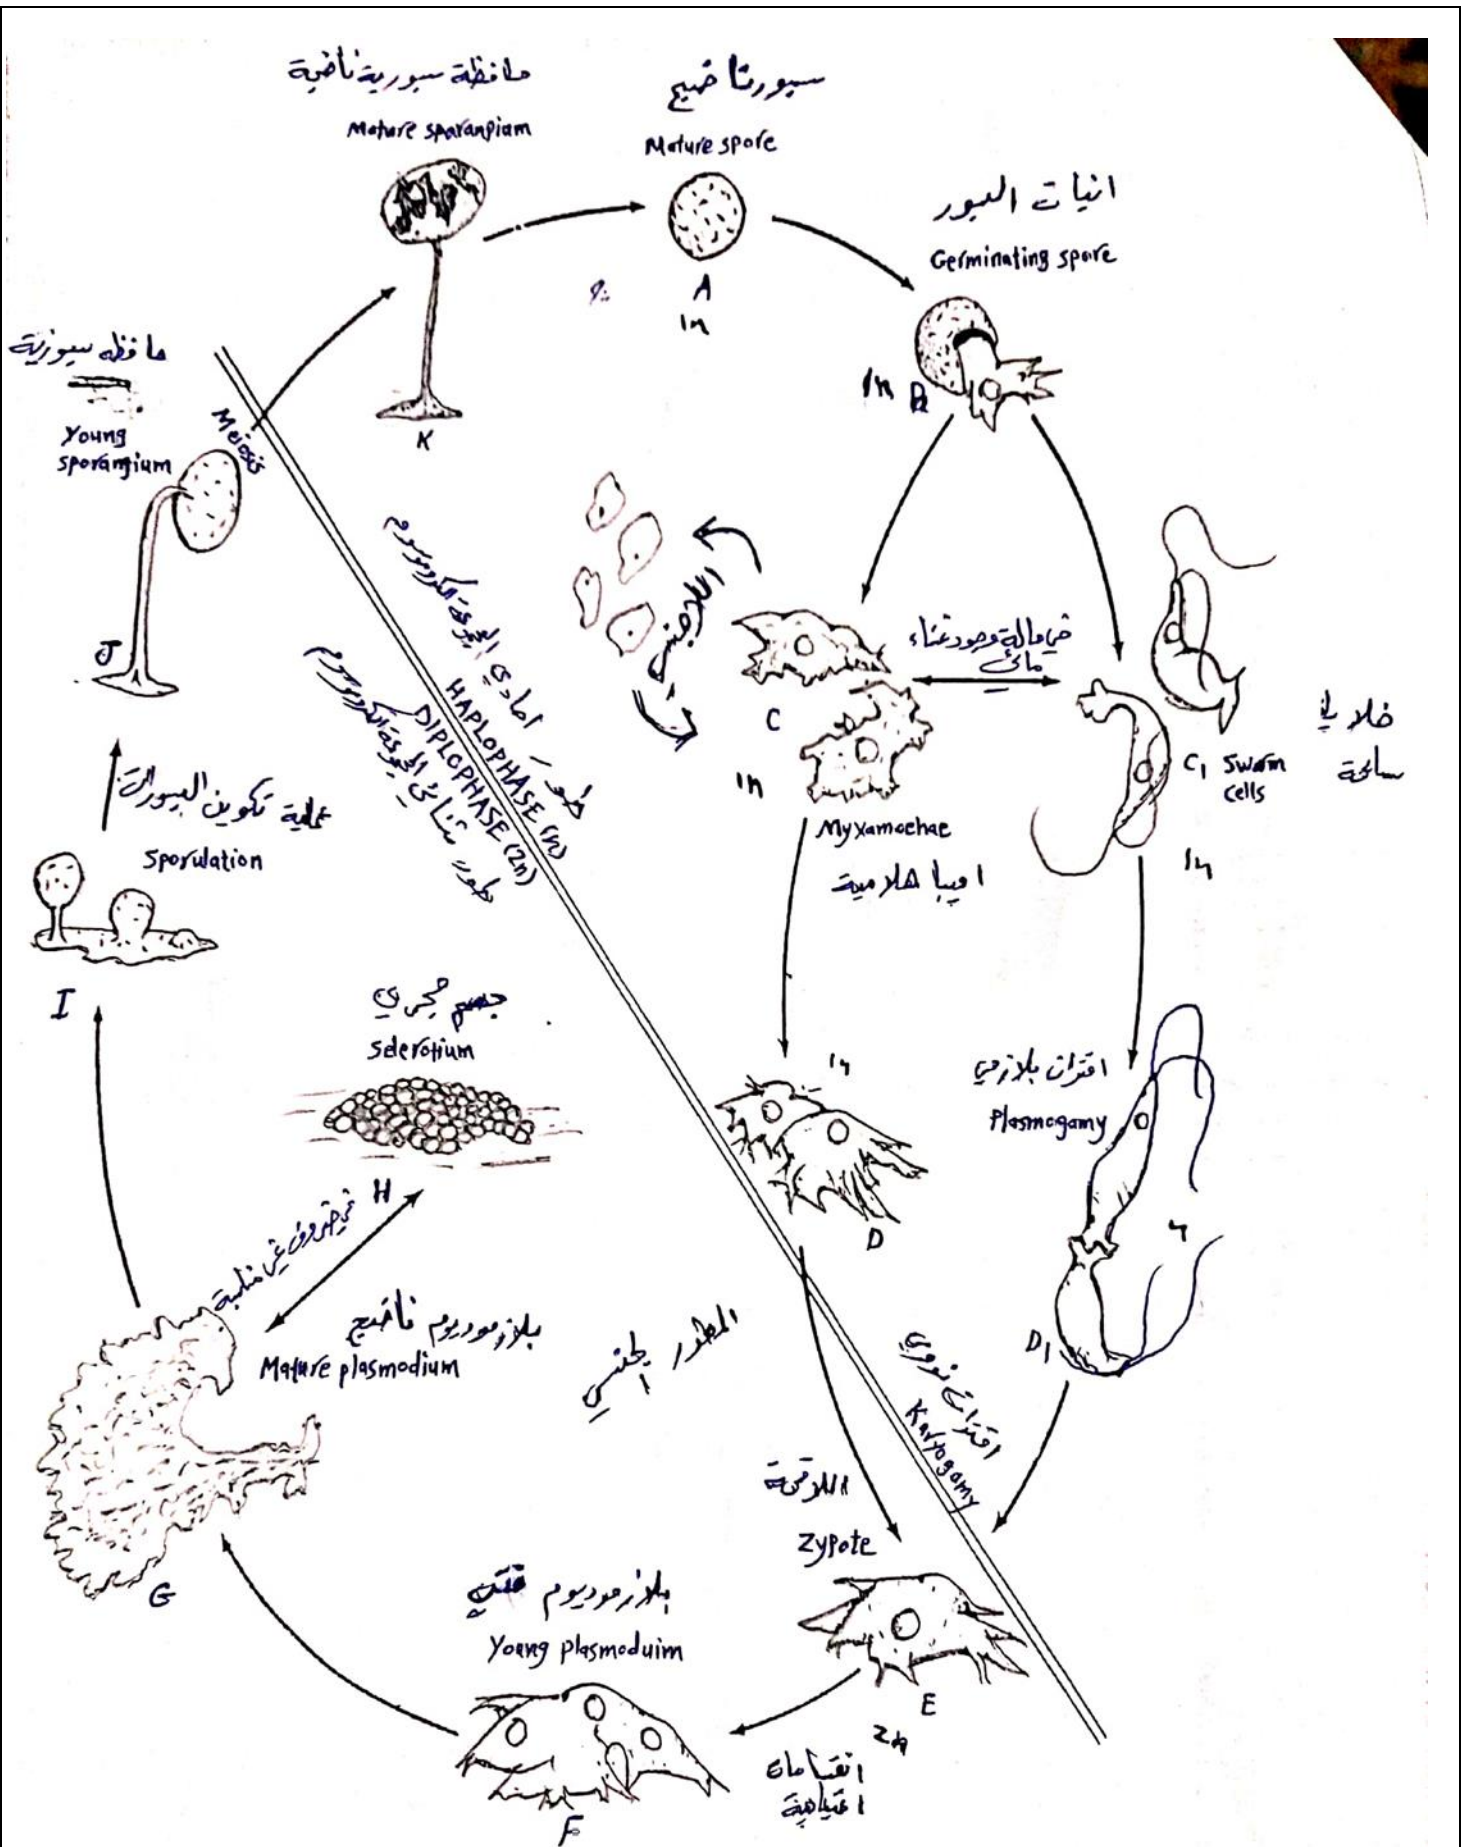 حافظة سبورية ناضجة
Mature sparangium
سبور ناضج
Mature spore
A
1n
انبات السبور
Germinating spore
1n B
K
حافظه سبورية
Young
sporangium
Meiosis
J
طور احادي المجموعة الكروموسوم
HAPLOPHASE (n)
DIPLOPHASE (2n)
طور ثنائي المجموعة الكروموسوم
اللاجنسي
C
1n
Myxamoebae
اميبا هلامية
في حالة وجود غشاء
مائي
C1 Swarm
cells
1n
خلايا
سابحة
عملية تكوين السبورات
Sporulation
I
جسم حجري
Sclerotium
H
في ظروف غير مناسبة
بلازموديوم ناضج
Mature plasmodium
G
1n
D
اقتران بلازمي
Plasmogamy
D1
الطور الجنسي
اقتران نووي
Karyogamy
اللاقحة
Zypote
E
2n
انقسامات
اعتيادية
بلازموديوم فتي
Young plasmoduim
F